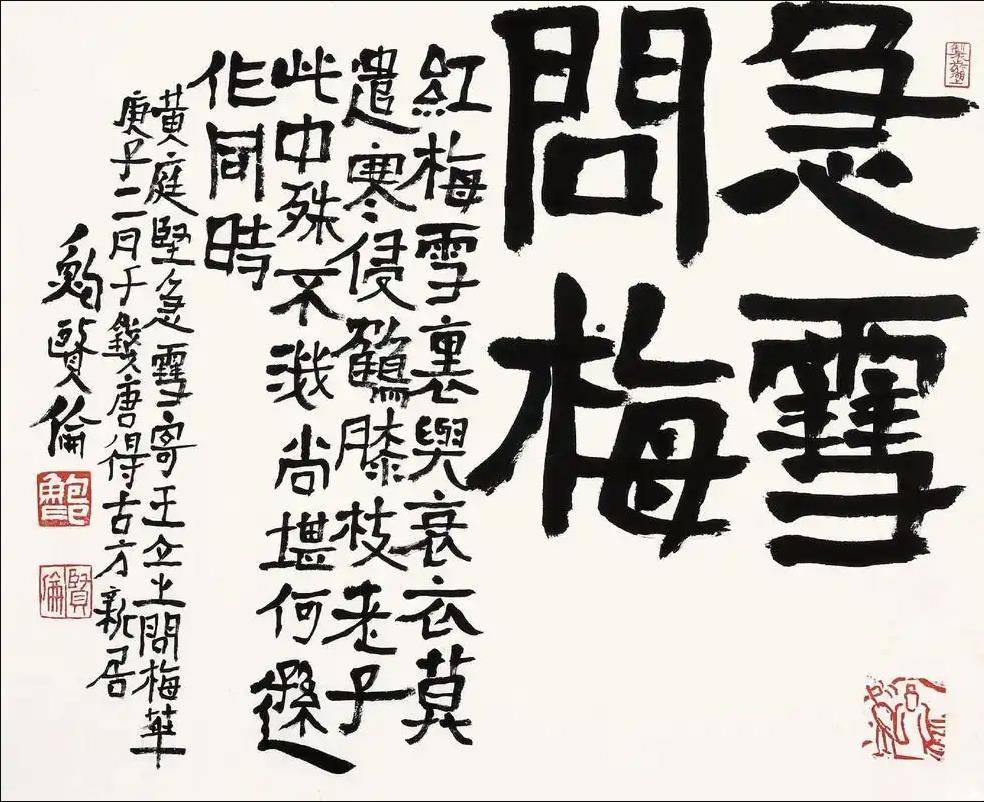 急雪
問梅
紅梅雪裏與衰衣莫
遣寒侵鶴膝枝老子
此中殊不淺尚堪何遜
作同時
黃庭堅急雪寄王立之問梅華
庚子二月于錢唐得古方新居
鮑賢倫
鮑
賢倫